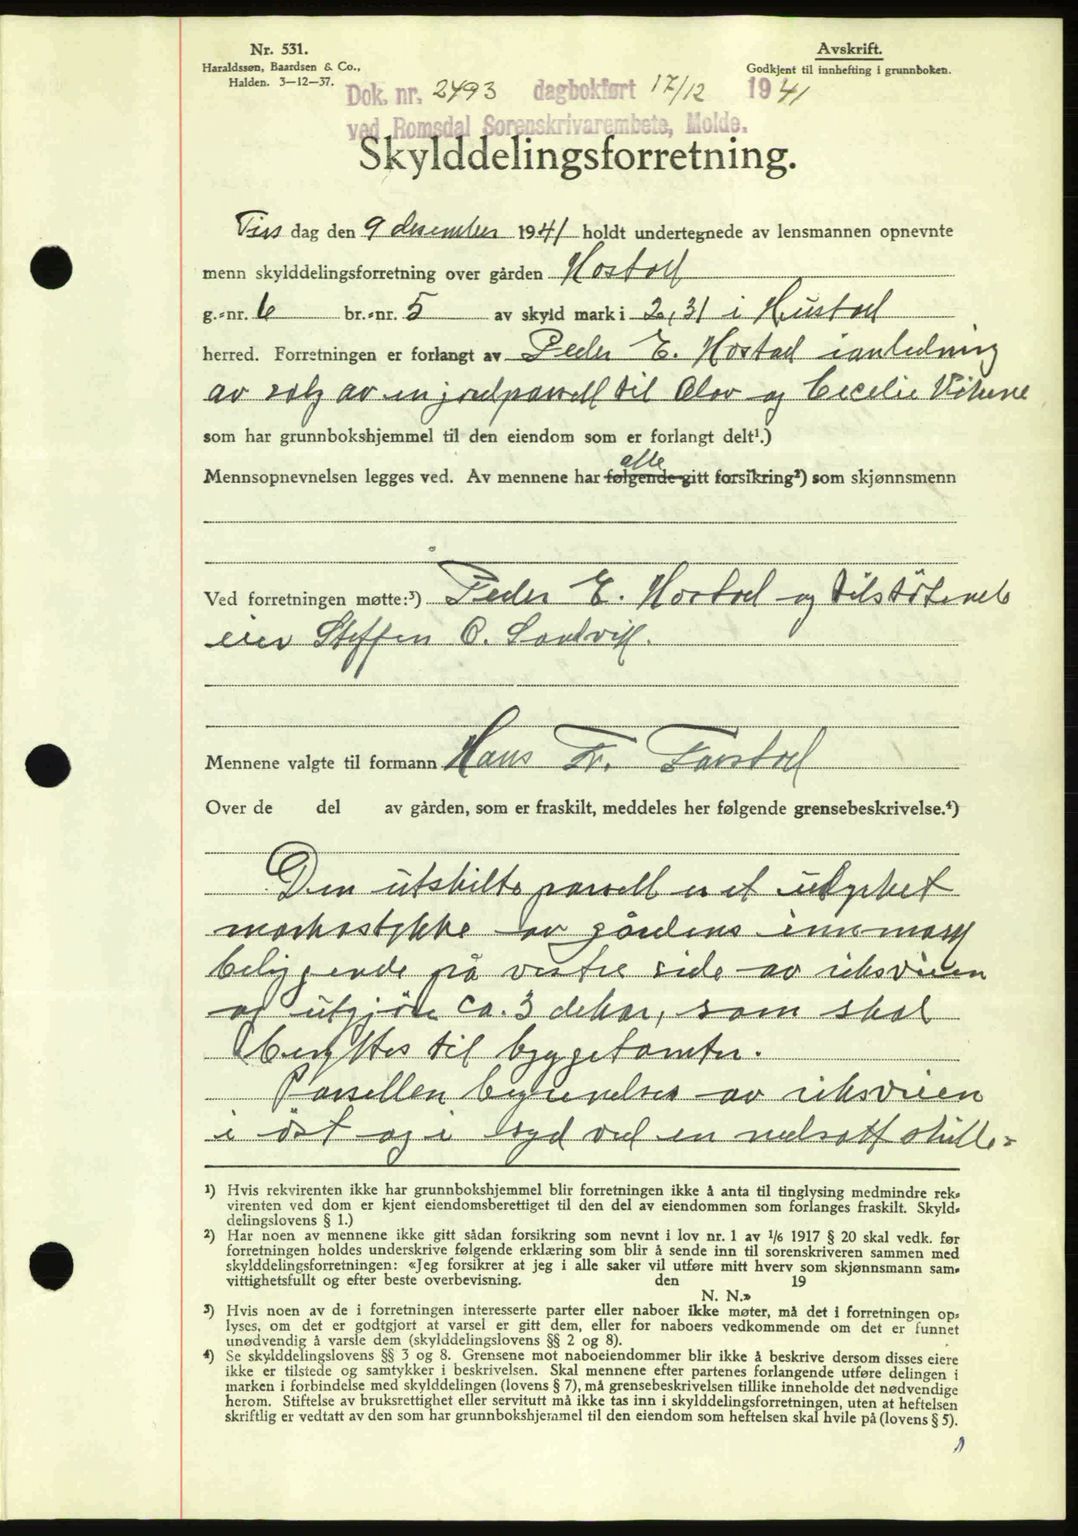 Nr. 531.
Haraldssøn, Baardsen & Co.,
Halden. 3-12-37.
Avskrift.
Godkjent til innhefting i grunnboken.
Dok. nr. 2493 dagbokført 17/12 1941
ved Romsdal Sorenskrivarembete, Molde.
Skylddelingsforretning.
Tirs dag den 9 desember 1941 holdt undertegnede av lensmannen opnevnte
menn skylddelingsforretning over gården Hostad
g.=nr. 6 br.=nr. 5 av skyld mark i 2,31 i Hustad
herred. Forretningen er forlangt av Peder E. Hostad i anledning
av salg av en jordparsell til Olov og Cecelie Vikene
som har grunnbokshjemmel til den eiendom som er forlangt delt¹.)
alle
Mennsopnevnelsen legges ved. Av mennene har følgende gitt forsikring²) som skjønnsmenn
Ved forretningen møtte:³) Peder E. Hostad og tilstøtende
eier Steffen O. Sandvik.
Mennene valgte til formann Hans Fr. Farstad
Over de del av gården, som er fraskilt, meddeles her følgende grensebeskrivelse.⁴)
Den utskilte parsell er et udyrket
markastykke av gårdens innmark
beliggende på vestre side av riksveien
og utgjør ca. 3 dekar, som skal
benyttes til byggetomter.
Parsellen begrenses av riksveien
i øst og i syd ved en nedsatt skille=
¹) Hvis rekvirenten ikke har grunnbokshjemmel blir forretningen ikke å anta til tinglysing medmindre rek=
virenten ved dom er kjent eiendomsberettiget til den del av eiendommen som forlanges fraskilt. Skyld=
delingslovens § 1.)
²) Har noen av mennene ikke gitt sådan forsikring som nevnt i lov nr. 1 av 1/6 1917 § 20 skal vedk. før
forretningen holdes underskrive følgende erklæring som blir å sende inn til sorenskriveren sammen med
skylddelingsforretningen: «Jeg forsikrer at jeg i alle saker vil utføre mitt hverv som skjønnsmann sam=
vittighetsfullt og efter beste overbevisning. den 19
N. N.»
³) Hvis noen av de i forretningen interesserte parter eller naboer ikke møter, må det i forretningen op=
lyses, om det er godtgjort at varsel er gitt dem, eller for naboers vedkommende om det er funnet
unødvendig å varsle dem (skylddelingslovens §§ 2 og 8).
⁴) Se skylddelingslovens §§ 3 og 8. Grensene mot naboeiendommer blir ikke å beskrive dersom disses eiere
ikke er tilstede og samtykker i beskrivelsen. Skal mennene efter partenes forlangende utføre delingen i
marken i forbindelse med skylddelingen (lovens § 7), må grensebeskrivelsen tillike inneholde det nødvendige
herom. Stiftelse av bruksrettighet eller servitutt må ikke tas inn i skylddelingsforretningen, uten at heftelsen
skriftlig er vedtatt av den som har grunnbokshjemmel til den eiendom som heftelsen skal hvile på (lovens § 5).